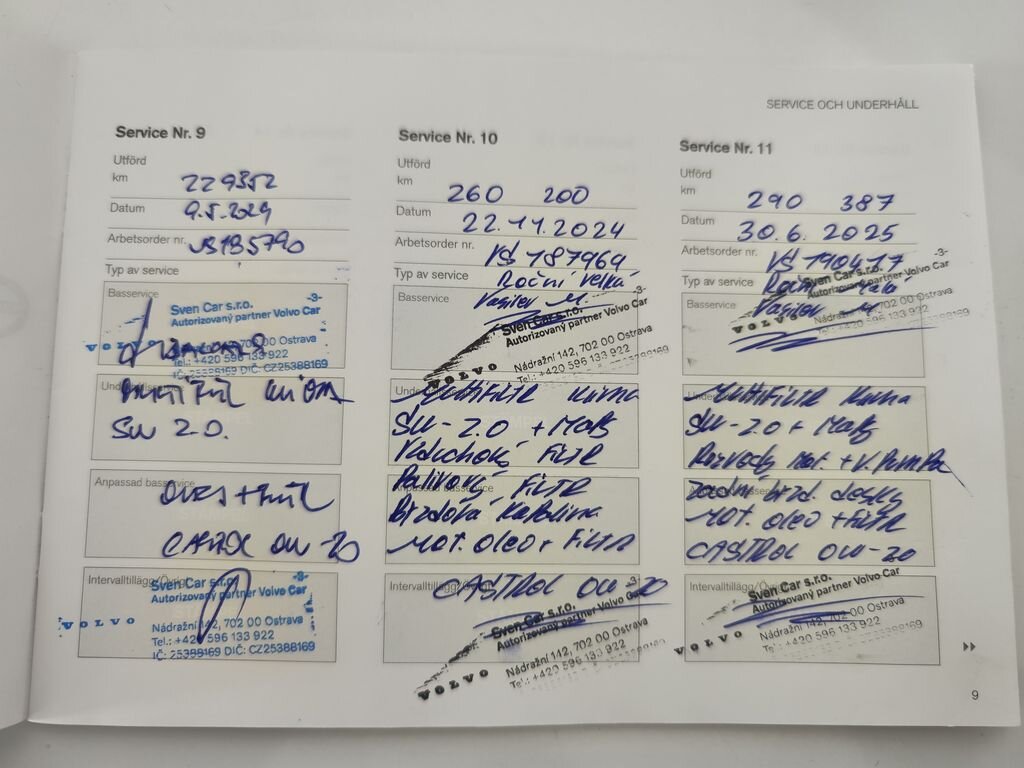 SERVICE OCH UNDERHÅLL
Service Nr. 9
Utförd
km 229352
Datum 9.5.2024
Arbetsorder nr.
Typ av service
Basservice
Sven Car s.r.o. -3-
Autorizovaný partner Volvo Car
VOLVO
702 00 Ostrava
Tel.: +420 596 133 922
IČ: 25388169 DIČ: CZ25388169
SW 2.0.
Anpassad basservice
OW-20
Intervalltillägg/Övrigt
Sven Car s.r.o. -3-
Autorizovaný partner Volvo Car
VOLVO
Nádražní 142, 702 00 Ostrava
Tel.: +420 596 133 922
IČ: 25388169 DIČ: CZ25388169
Service Nr. 10
Utförd
km 260 200
Datum 22.11.2024
Arbetsorder nr. VS 187964
Typ av service Roční velká
Basservice Vasilev M. -3-
Sven Car s.r.o.
Autorizovaný partner Volvo Car
VOLVO
Nádražní 142, 702 00 Ostrava
Tel.: +420 596 133 922
Multifiltr
SW-2.0 + Maps
Vzduchový Filtr
Palivový Filtr
Anpassad basservice
Brzdová Kapalina
Mot. oleo + Filtr
Intervalltillägg/Övrigt
CASTROL OW-20
Sven Car s.r.o. -3-
Autorizovaný partner Volvo Car
VOLVO
Nádražní 142, 702 00 Ostrava
Tel.: +420 596 133 922
Service Nr. 11
Utförd
km 290 387
Datum 30.6.2025
Arbetsorder nr. VS 190417
Typ av service Roční Malá
Basservice Vasilev M.
Sven Car s.r.o. -3-
Autorizovaný partner Volvo Car
VOLVO
Nádražní 142, 702 00 Ostrava
Tel.: +420 596 133 922
Multifiltr
SW-2.0 + Maps
Rozvody Mot. + V. Pumpa
Zadní brzd. desky
Mot. oleo + Filtr
CASTROL OW-20
Intervalltillägg/Övrigt
Sven Car s.r.o. -3-
Autorizovaný partner Volvo Car
VOLVO
Nádražní 142, 702 00 Ostrava
Tel.: +420 596 133 922
9